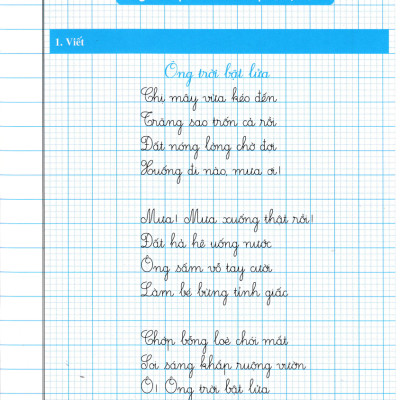 1. Viết
Ông trời bật lửa
Chị mây vừa kéo đến
Trăng sao trốn cả rồi
Đất nóng lòng chờ đợi
Xuống đi nào, mưa ơi!
Mưa! Mưa xuống thật rồi!
Đất hả hê uống nước
Ông sấm vỗ tay cười
Làm bé bừng tỉnh giấc
Chớp bỗng loè chói mắt
Soi sáng khắp ruộng vườn
Ô! Ông trời bật lửa